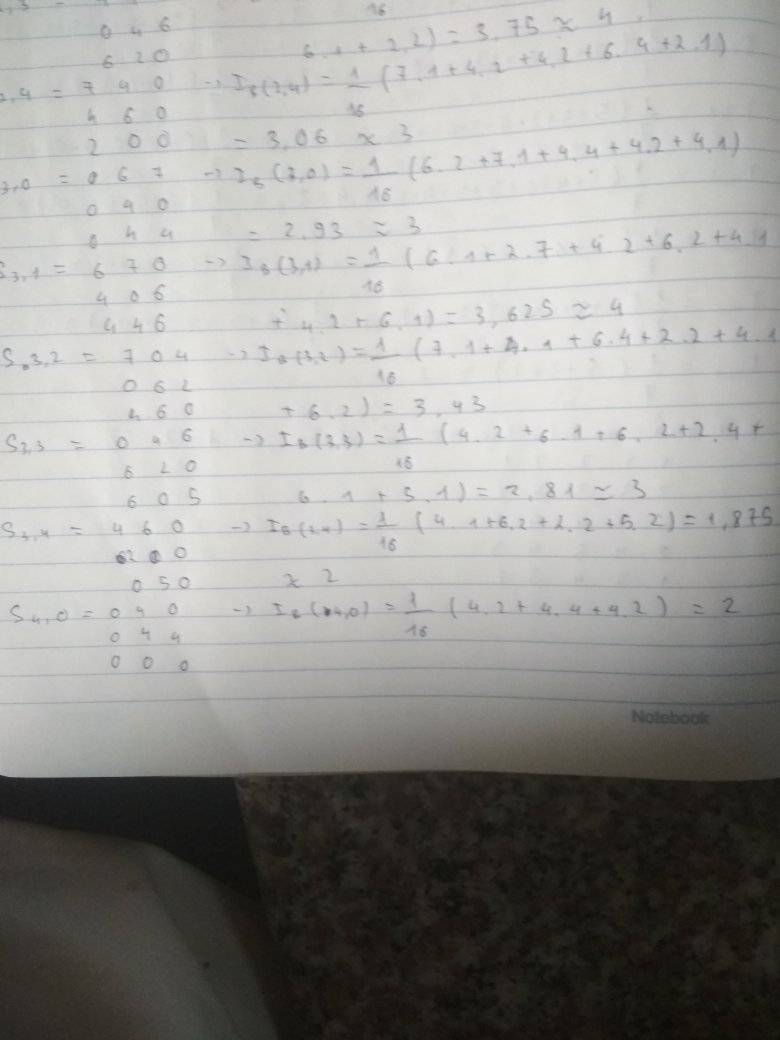 16
0 4 6
6 2 0 6 . 1 + 2.2) = 3,75 ≈ 4
2,4 = 7 4 0 → I6(2,4) = 1/16 (7.1+4.2+4.2+6.4+2.1)
4 6 0
2 0 0 = 3,06 ≈ 3
3,0 = 0 6 7 → I6(3,0) = 1/16 (6.2+7.1+4.4+4.2+4.1)
0 4 0
0 4 4 = 2.93 ≈ 3
S3,1 = 6 7 0 → I6(3,1) = 1/16 (6.1+2.7+4.2+6.2+4.1
4 0 6
4 4 6 + 4.2+6.1) = 3,625 ≈ 4
S.3,2 = 7 0 4 → I6(3,2) = 1/16 (7.1+4.1+6.4+2.2+4.1
0 6 2
4 6 0 + 6.2) = 3,43
S3,3 = 0 4 6 → I6(3,3) = 1/16 (4.2+6.1+6.2+2.4+
6 2 0
6 0 5 6.1+5.1) = 2,81 ≃ 3
S3,4 = 4 6 0 → I6(3,4) = 1/16 (4.1+6.2+2.2+5.2) = 1,875
2 0 0
0 5 0 ≈ 2
S4,0 = 0 4 0 → I6(4,0) = 1/16 (4.2+4.4+4.2) = 2
0 4 4
0 0 0
Notebook